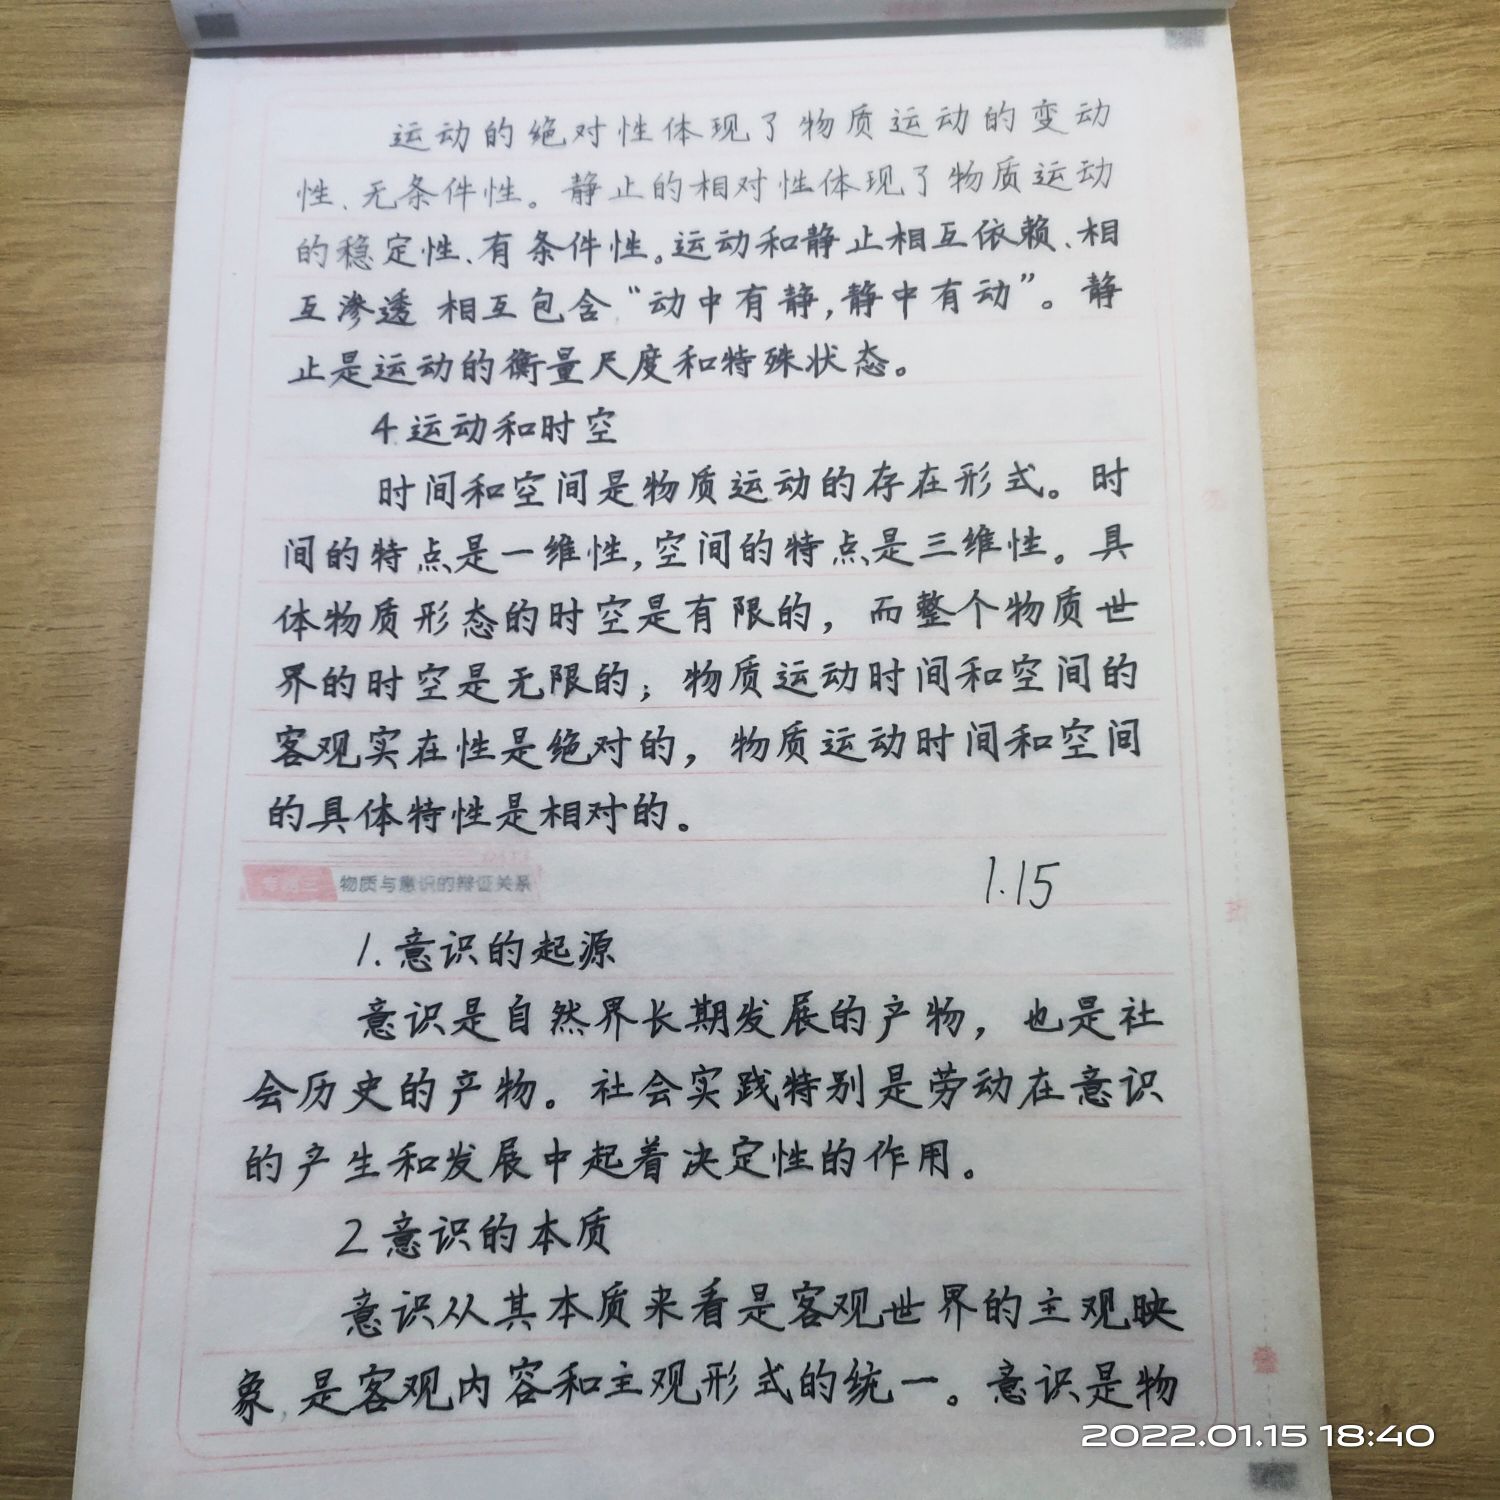 运动的绝对性体现了物质运动的变动
性、无条件性。静止的相对性体现了物质运动
的稳定性、有条件性。运动和静止相互依赖、相
互渗透 相互包含“动中有静,静中有动”。静
止是运动的衡量尺度和特殊状态。
4.运动和时空
时间和空间是物质运动的存在形式。时
间的特点是一维性,空间的特点是三维性。具
体物质形态的时空是有限的,而整个物质世
界的时空是无限的;物质运动时间和空间的
客观实在性是绝对的,物质运动时间和空间
的具体特性是相对的。
物质与意识的辩证关系
1.15
1.意识的起源
意识是自然界长期发展的产物,也是社
会历史的产物。社会实践特别是劳动在意识
的产生和发展中起着决定性的作用。
2意识的本质
意识从其本质来看是客观世界的主观映
象,是客观内容和主观形式的统一。意识是物
2022.01.15 18:40